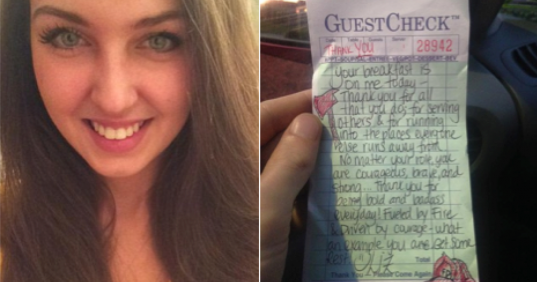 GUESTCHECK™
Date Table Guests Server
THANK YOU 28942
Your breakfast is
on me today -
Thank you for all
that you do & for serving
others & for running
into the places everyone
else runs away from.
No matter your role you
are courageous, brave, and
strong. Thank you for
being bold and badass
everyday! Fueled by Fire
& Driven by courage - what
an example you are. Get some
rest. Liz
Total
Thank You - Please Come Again